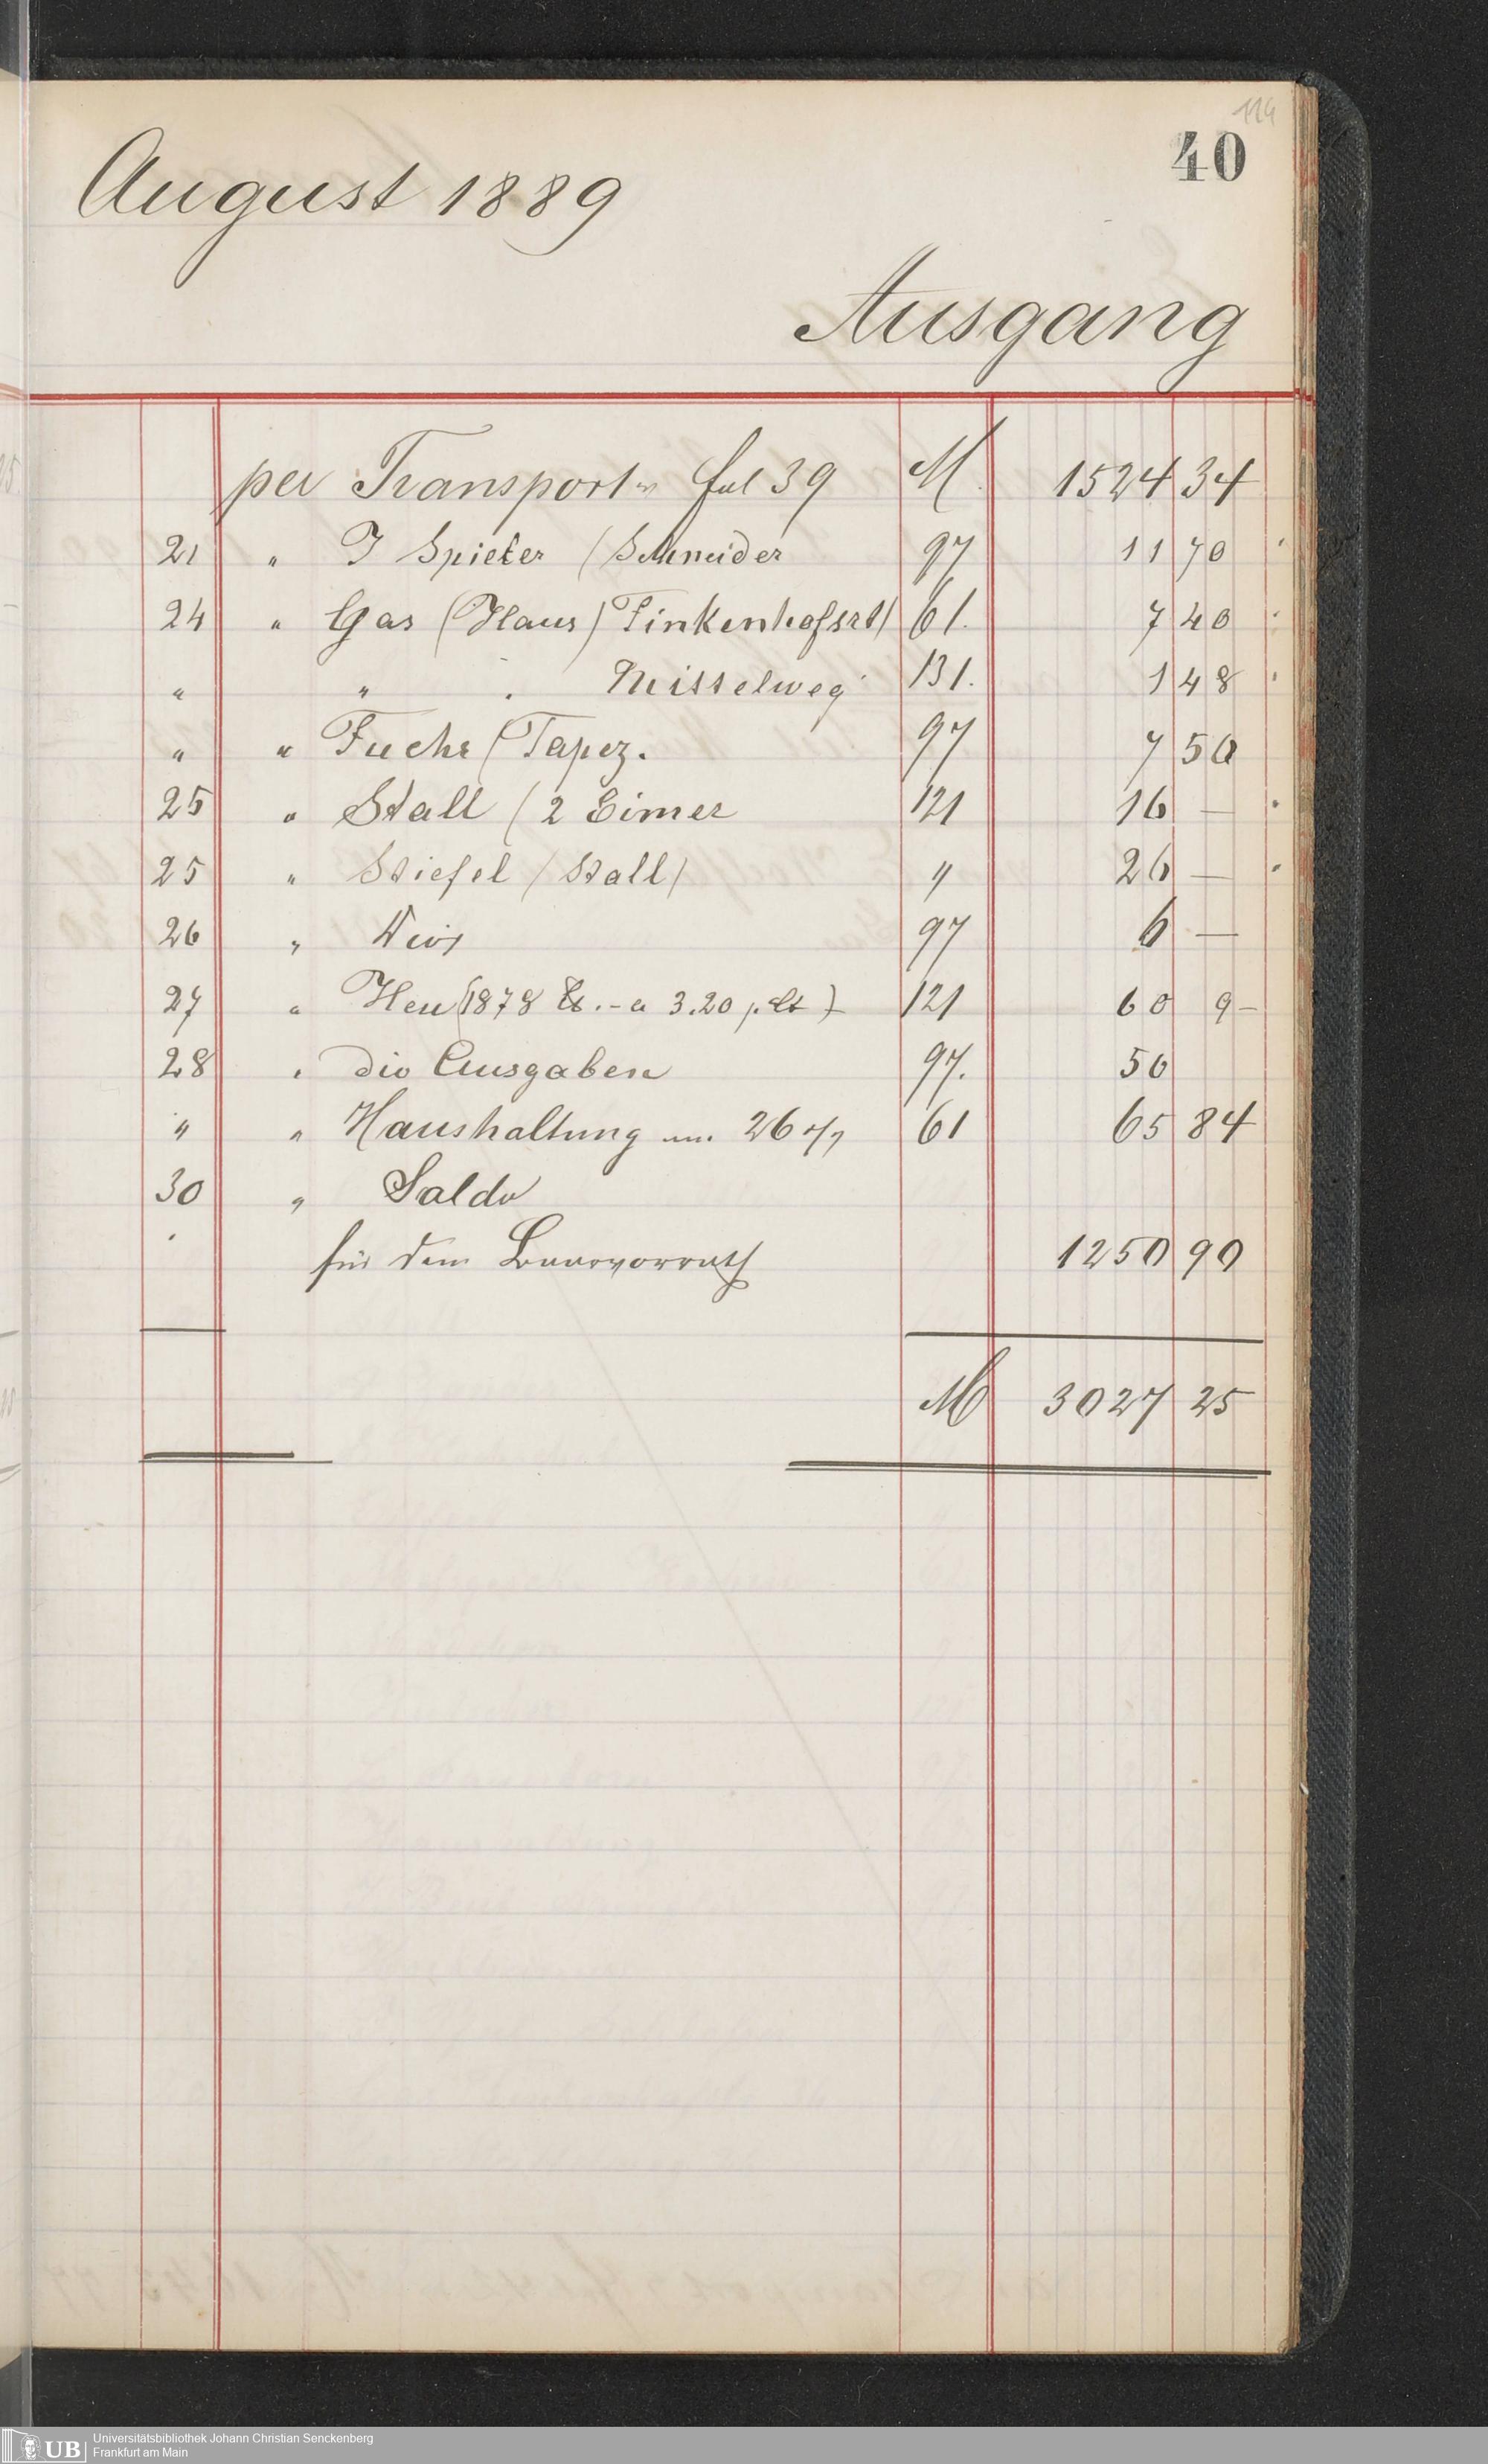 114
40
August 1889
Ausgang
per Transport v fol 39 M. 1524 34
21 " J Spieler (Schneider 97 11 70
24 " Gas (Haus) Finkenhofstr) 61. 7 40
" " " Misselweg 131. 1 48
" " Fuchs (Tapez. 97 7 50
25 " Stall (2 Eimer 121 16 —
25 " Stiefel (Stall) " 26 —
26 " 97 6 —
27 " Heu (1878 ℔. - a 3.20 p. Ct) 121 60 9-
28 " div Ausgaben 97. 50
" " Haushaltung 26 61 65 84
30 " Saldo
für den Baarvorrath 1250 90
M 3027 25
UB
Universitätsbibliothek Johann Christian Senckenberg
Frankfurt am Main